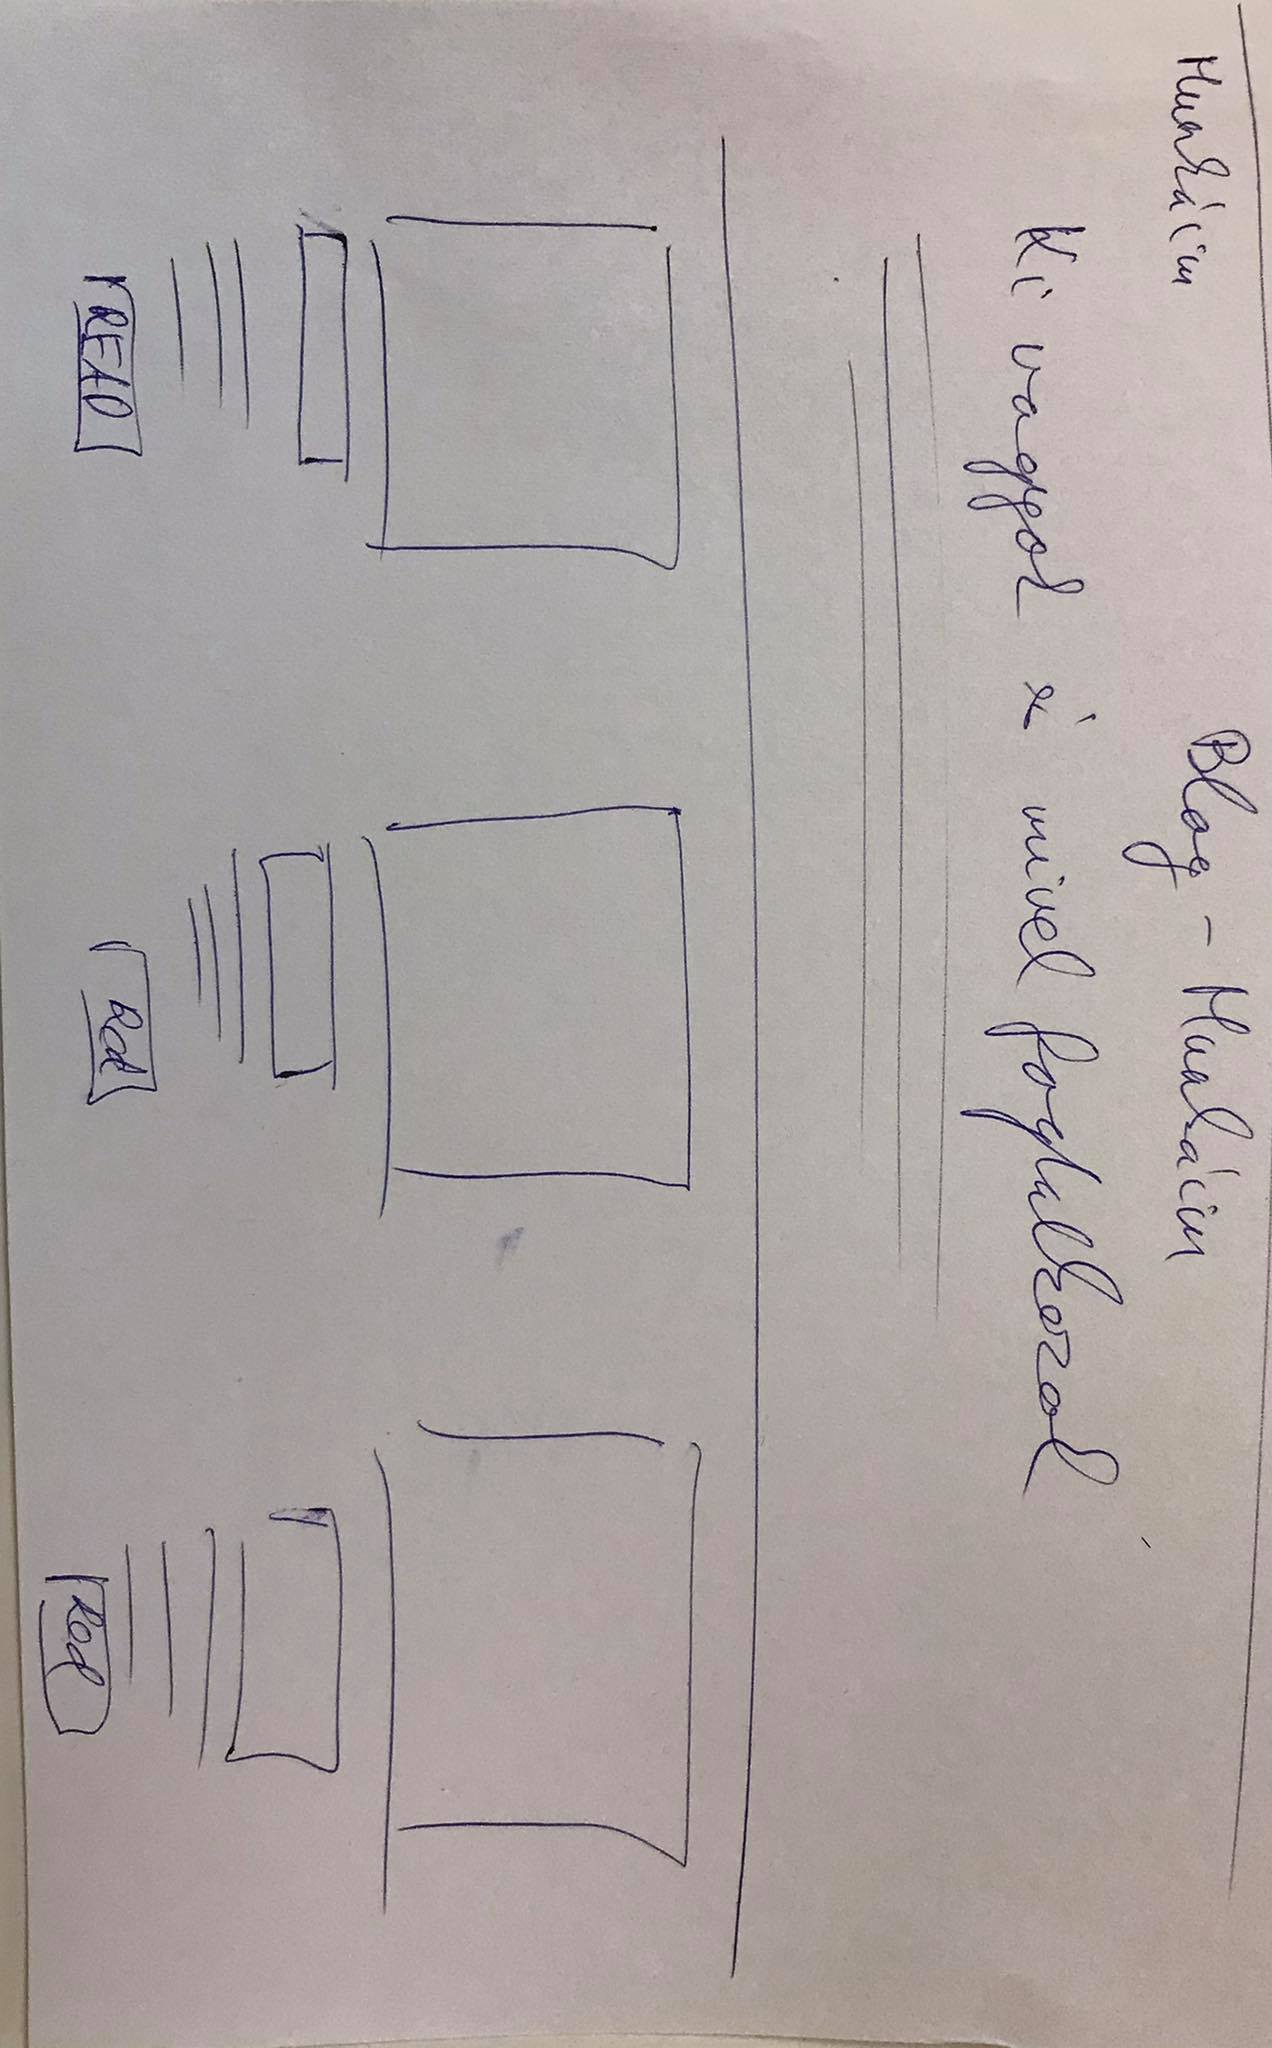 Munkáim
Blog - Munkáim
Ki vagyok és mivel foglalkozok
READ
Read
Read